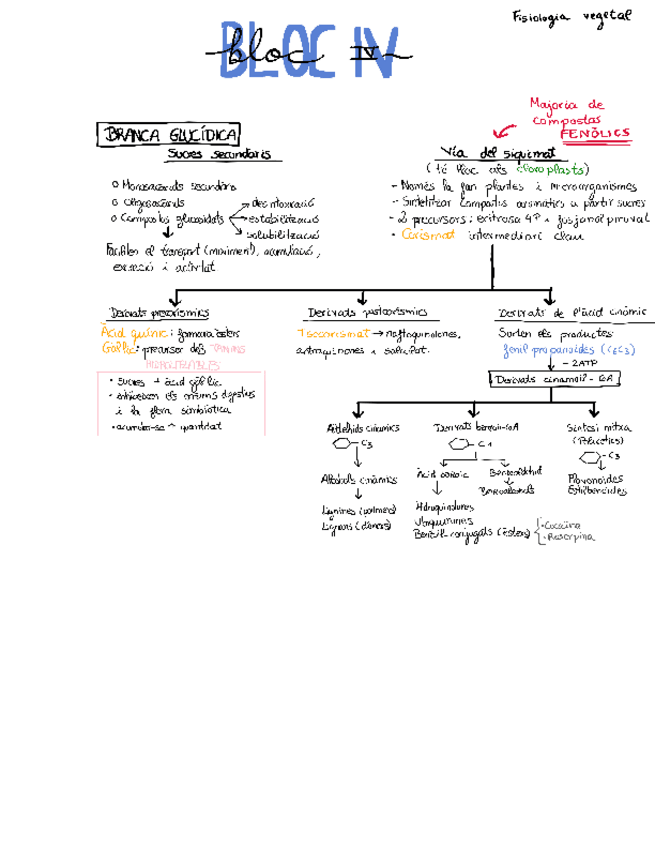 Fisiologia vegetal
BLOC IV
bloc IV
Majoria de
compostos
FENÒLICS
BRANCA GLUCÍDICA
Sucres secundaris
Monosacàrids secundaris
Oligosacàrids
Compostos glucosidats
desintoxicació
estabilització
solubilització
Faciliten el transport (moviment), acumulació,
excreció i activitat
Via del siquimat
(té lloc als cloroplasts)
- Només la fan plantes i microorganismes
- Sintetitzar compostos aromàtics a partir sucres
- 2 precursors: eritrosa 4P i fosfoenol piruvat
- Corismat intermediari clau
Derivats precorísmics
Àcid químic: formarà èsters
Gàl·lic: precursor dels TANINS
HIDROLITZABLES
• sucres + àcid gàl·lic
• inhibeixen els enzims digestius
i la flora simbiòtica
• acumular-se ^ quantitat
Derivats postcorísmics
Isocorismat → naftoquinolones,
antraquinones i salicilat.
Derivats de l'àcid cinàmic
Surten els productes
fenil propanoides (C6C3)
- 2ATP
Derivats cinamoil - CoA
Aldehids cinàmics
C3
Alcohols cinàmics
Lignines (polímers)
Lignans (dímers)
Derivats benzoil-CoA
C1
Àcid
Benzoaldehid
Hidroquinolones
Benzil conjugats (èsters)
- Cocaïna
- Reserpina
Síntesi mixta
(Policètics)
-C3
Flavonoides
Estilbenoides